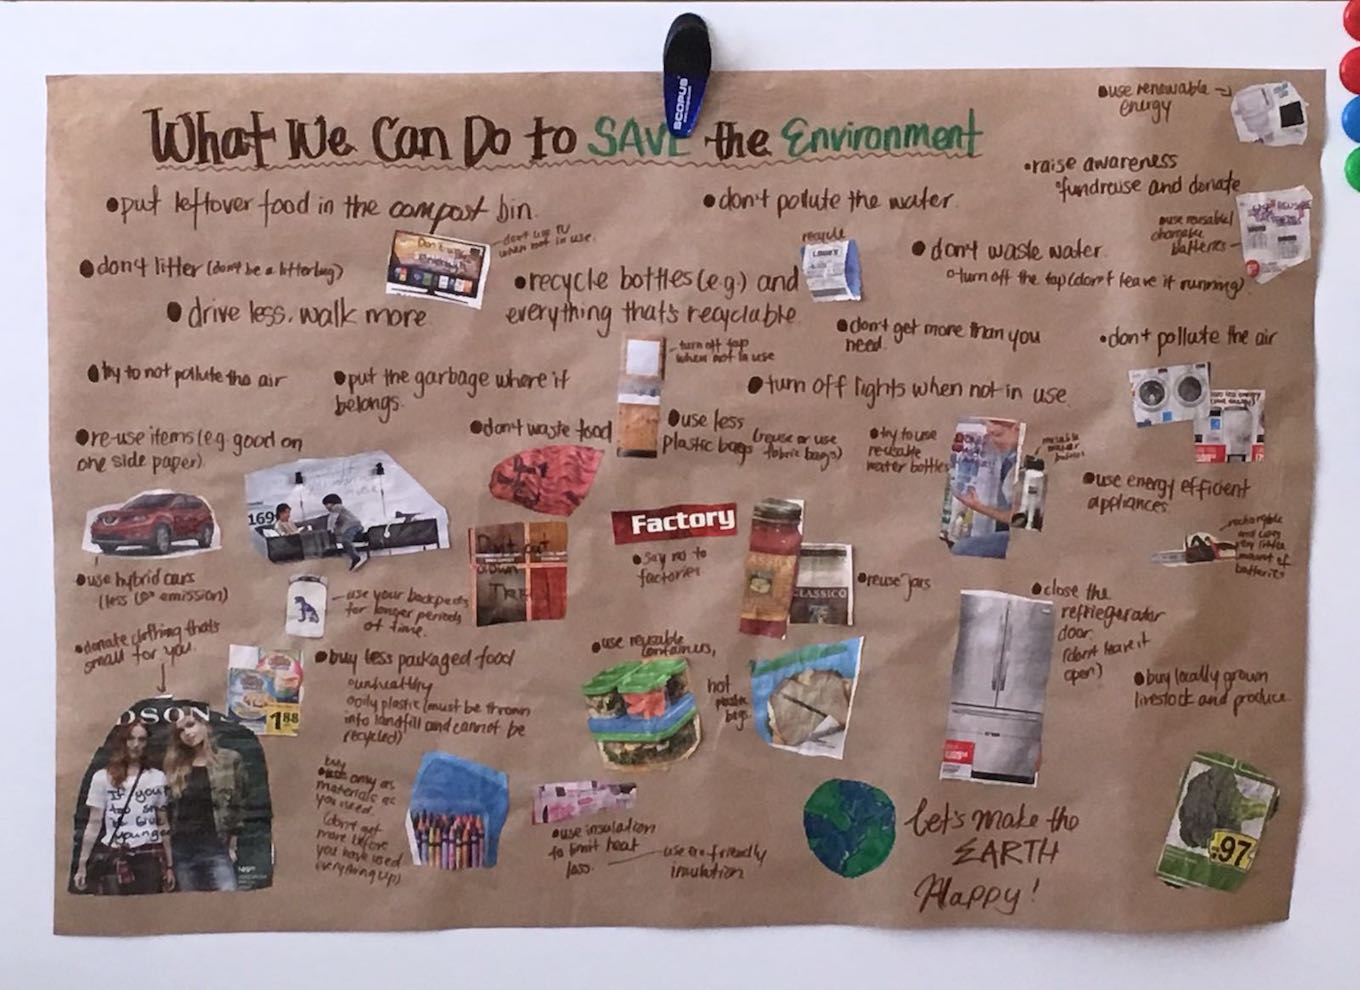 What We Can Do to SAVE the Environment
SCOPUS
•use renewable
energy
•raise awareness
•fundraise and donate
•use reusable/
chargable
batteries
•put leftover food in the compost bin.
•don't pollute the water.
don't use TV
when not in use.
•don't litter (don't be a litterbug)
recycle
LOWE'S
•recycle bottles (e.g.) and
everything that's recyclable.
•don't waste water.
•turn off the tap (don't leave it running).
•drive less. walk more.
•don't get more than you
need.
•don't pollute the air
turn off tap
when not in use
•try to not pollute the air
•put the garbage where it
belongs.
•turn off lights when not in use.
•re-use items (e.g. good on
one side paper)
•don't waste food
•use less
plastic bags (reuse or use
fabric bags)
•try to use
reusable
water bottles
•use energy efficient
appliances.
169
Don't
Don't cut
down
TREE
Factory
•say no to
factories
CLASSICO
•reuse jars
•use hybrid cars
(less CO² emission)
use your backpacks
for longer periods
of time.
•close the
refriegerator
door.
(don't leave it
open)
•donate clothing that's
small for you.
•buy less packaged food
•unhealthy
•oily plastic (must be thrown
into landfill and cannot be
recycled)
188
•use reusable
containers,
not
plastic
bags.
•buy locally grown
livestock and produce.
DSON
If your
too small
give
younger
buy
only as
materials as
you need.
(don't get
more before
you have used
everything up)
•use insulation
to limit heat
loss.
use eco-friendly
insulation
Let's make the
EARTH
Happy!
.97